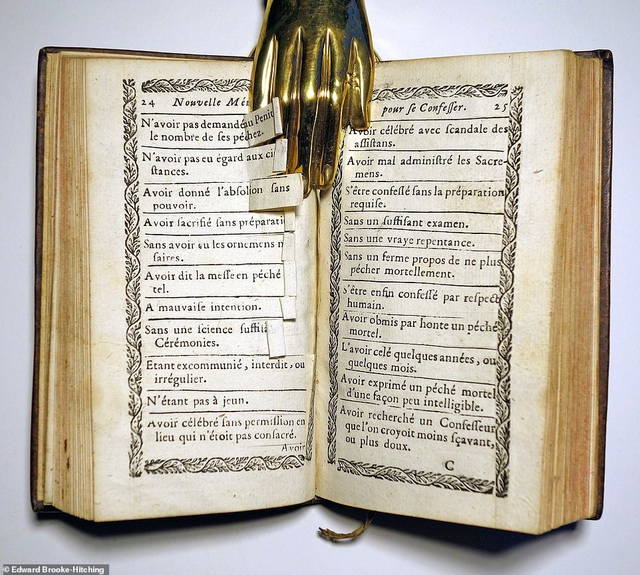 24 Nouvelle Mé
N'avoir pas demandé au Penit
le nombre de ses péchez.
N'avoir pas eu égard aux ci
stances.
Avoir donné l'absolution sans
pouvoir.
Avoir sacrifié sans préparati
Sans avoir eu les ornemens n
saires.
Avoir dit la messe en péché
tel.
A mauvaise intention.
Sans une science suffis
Cérémonies.
Etant excommunié, interdit, ou
irrégulier.
N'étant pas à jeun.
Avoir célébré sans permission en
lieu qui n'étoit pas consacré.
Avoir
pour se Confesser. 25
Avoir célébré avec scandale des
assistans.
Avoir mal administré les Sacre-
mens.
S'être confessé sans la préparation
requise.
Sans un suffisant examen.
Sans une vraye repentance.
Sans un ferme propos de ne plus
pécher mortellement.
S'être enfin confessé par respect
humain.
Avoir obmis par honte un péché
mortel.
L'avoir celé quelques années, ou
quelques mois.
Avoir exprimé un péché mortel
d'une façon peu intelligible.
Avoir recherché un Confesseur
que l'on croyoit moins sçavant,
ou plus doux.
C
© Edward Brooke-Hitching